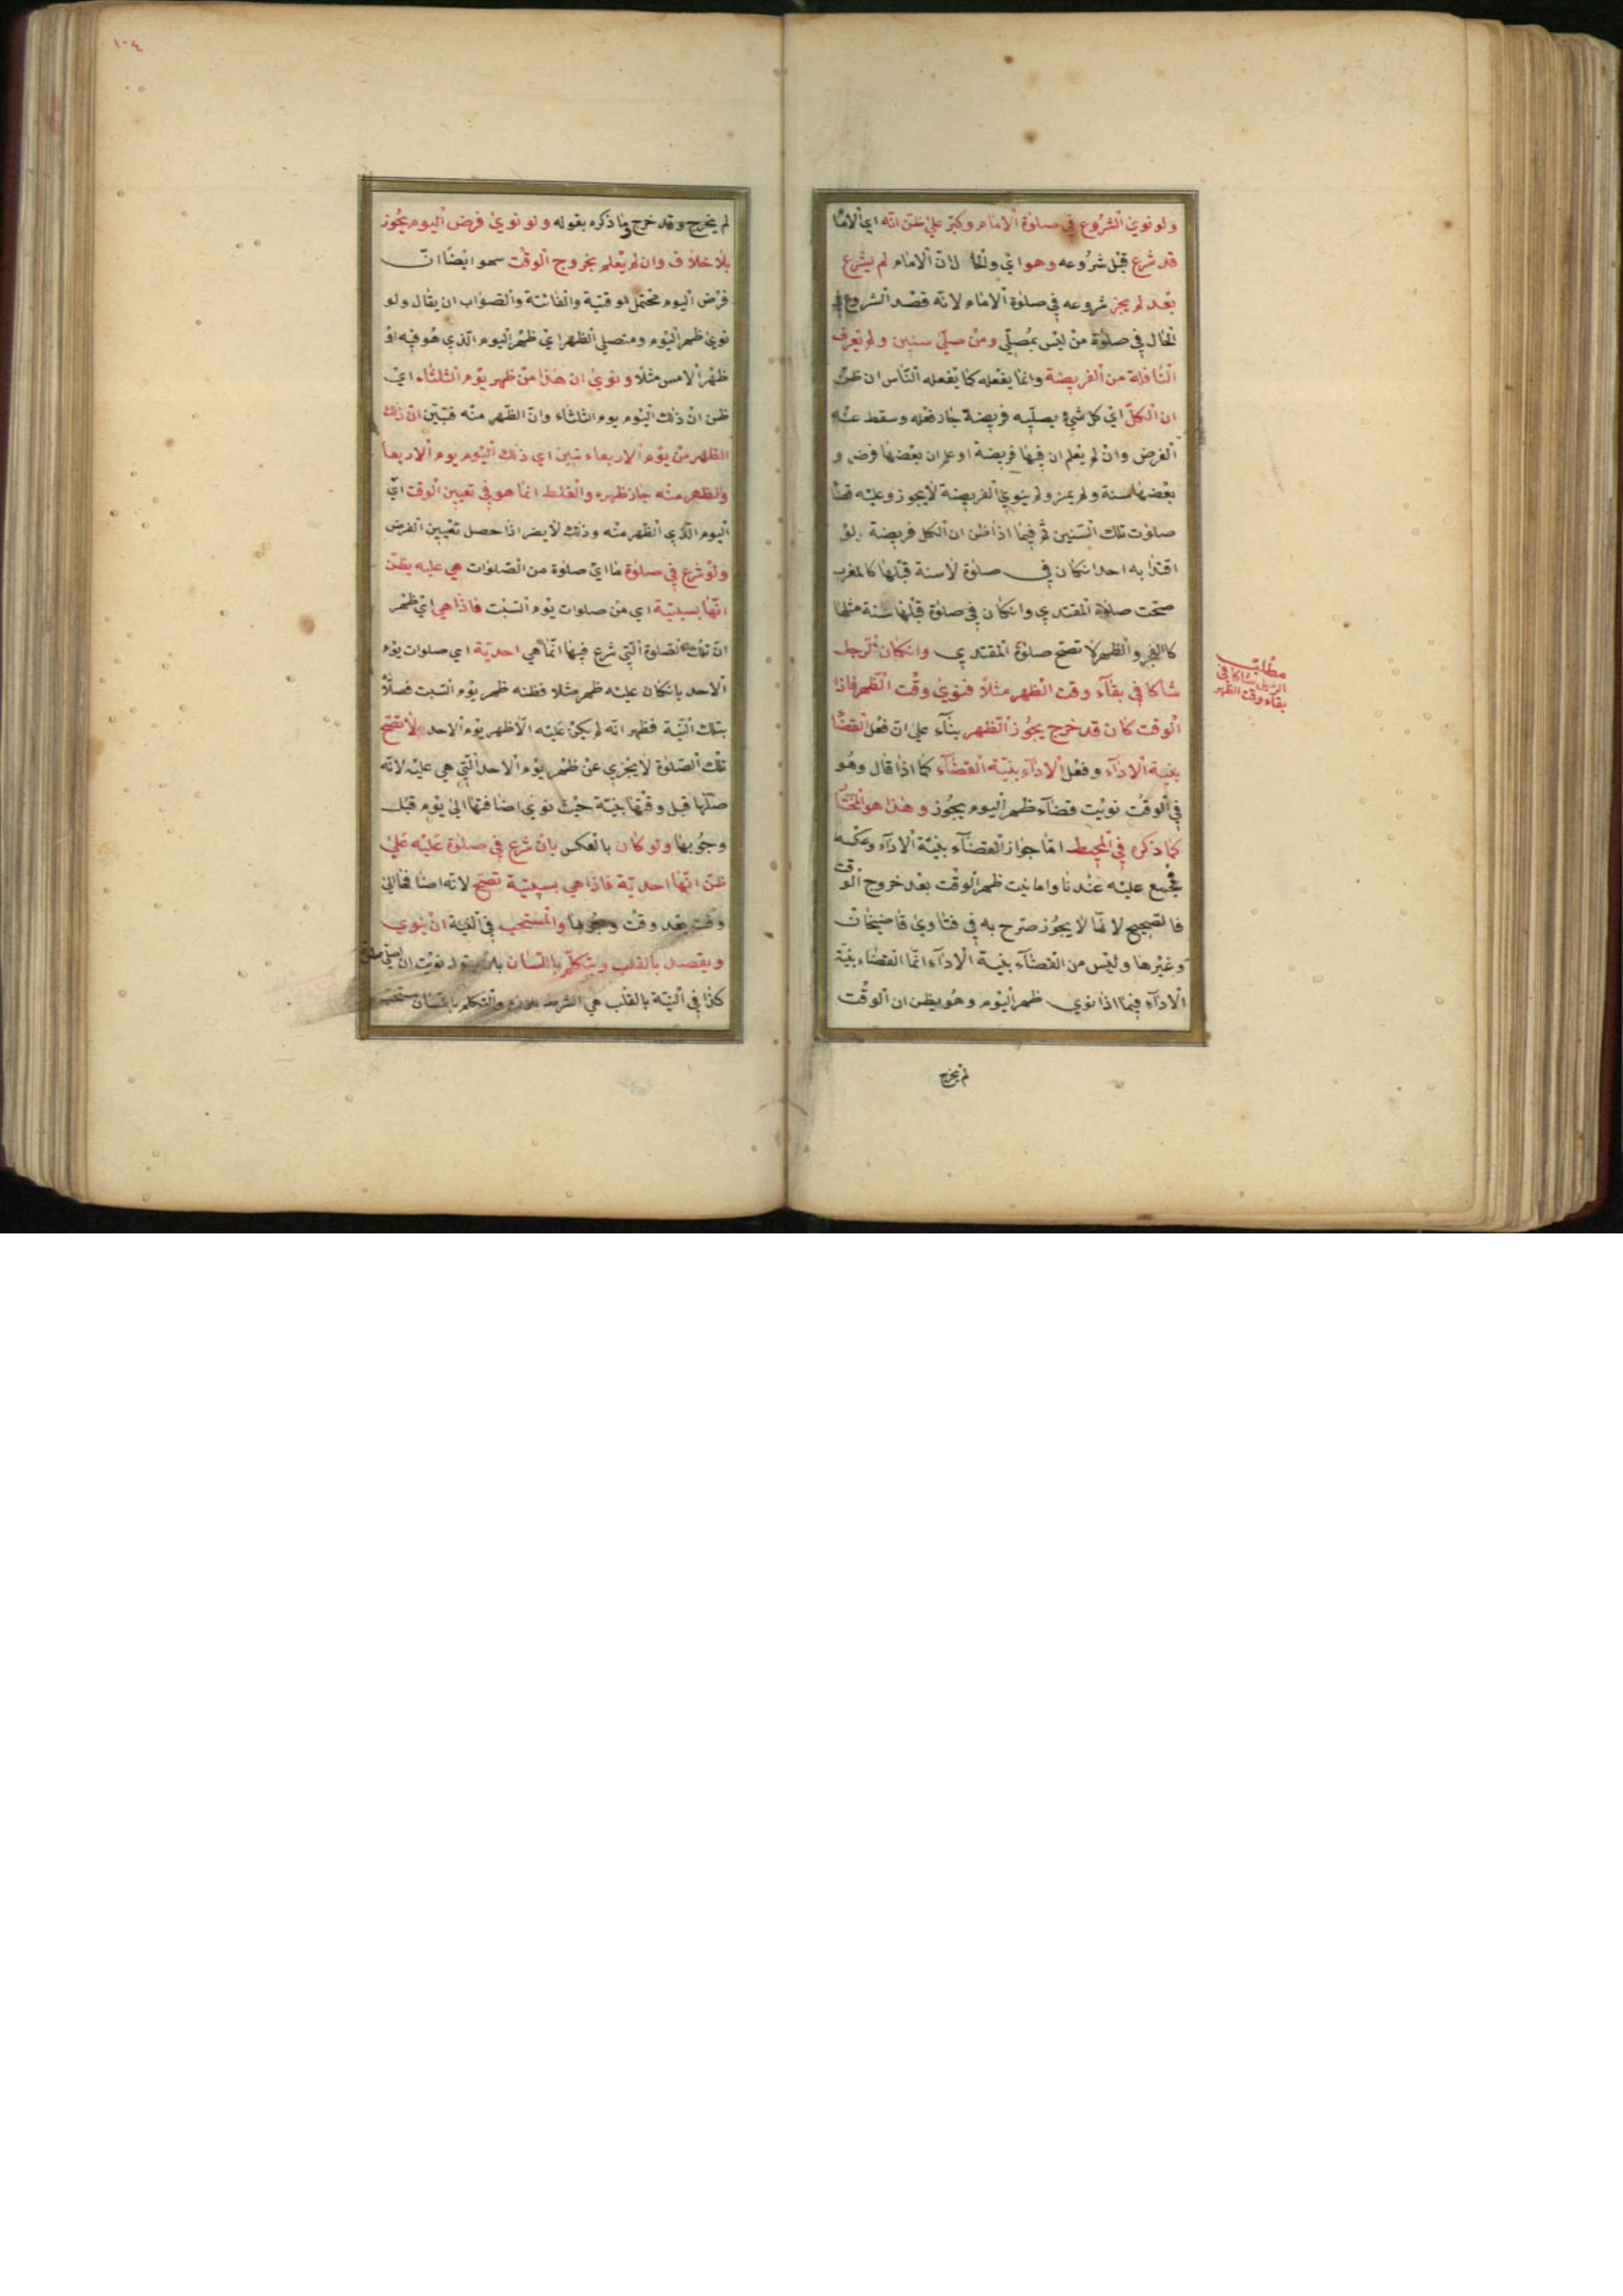 ولو نوى الشروع في صلوة الامام وكبر على ظن انه اي الاما
قد شرع قبل شروعه وهو اي والحا لان الامام لم يشرع
بعد لم يجز شروعه في صلوة الامام لانه قصد الشروع في
الحال في صلوة من ليس بمصلي ومن صلى سنين ولم يعرف
النافلة من الفريضة وانما يفعله كما يفعله الناس ان ظن
ان الكل اي كل شيء يصليه فريضة جاز فعله وسقط عنه
الفرض وان لم يعلم ان فيها فريضة او علم ان بعضها فرض و
بعضها سنة ولم يمز ولم ينوي الفريضة لا يجوز وعليه قضا
صلوت تلك السنين ثم فيما اذا ظن ان الكل فريضة لو
اقتدا به احد انكان في صلوة لا سنة قبلها كالمغرب
صحت صلوة المقتدي وانكان في صلوة قبلها سنة مثلها
كالفجر والظهر لا تصح صلوة المقتدي وانكان الرجل
شاكا في بقاء وقت الظهر مثلا فنوى وقت الظهر فاذا
الوقت كان قد خرج يجوز الظهر بناء على ان فعل القضا
بنية الاداء وفعل الاداء بنية القضاء كما اذا قال وهو
في الوقت نويت قضاء ظهر اليوم يجوز وهذا هو المختا
كما ذكره في المحيط اما جواز القضاء بنية الاداء وعكسه
فمجمع عليه عندنا واما نيت ظهر الوقت بعد خروج الوقت
فالصحيح لا نما لا يجوز صرح به في فتاوي قاضيخان
وغيرها وليس من القضاء بنية الاداء انما القضاء بنية
الاداء فيما اذا نوي ظهر اليوم وهو يظن ان الوقت
لم يخرج
مطلب
الرجل شاكا في
بقاء وقت الظهر
١٠٤
لم يخرج وقد خرج وما ذكره بقوله ولو نوى فرض اليوم يجوز
بلا خلاف وان لم يعلم بخروج الوقت سهو ايضا ان
فرض اليوم محتمل الوقتية والفائتة والصواب ان يقال ولو
نوى ظهر اليوم ومتصلي الظهر اي ظهر اليوم الذي هو فيه او
ظهر الامس مثلا ونوى ان هذا من ظهر يوم الثلثاء اي
ظن ان ذلك اليوم يوم الثلثاء وان الظهر منه فتبين ان ذلك
الظهر من يوم الاربعاء تبين اي ذلك اليوم يوم الاربعا
والظهر منه جاز ظهره والغلط انما هو في تعيين الوقت اي
اليوم الذي الظهر منه وذلك لا يضر اذا حصل تعيين الفرض
ولو شرع في صلوة ما اي صلوة من الصلوات هي عليه يظن
انها سبتية اي من صلوات يوم السبت فاذا هي اي ظهر
ان تلك الصلوة التي شرع فيها انما هي احدية اي صلوات يوم
الاحد بانكان عليه ظهر مثلا فظنه ظهر يوم السبت فصلا
بتلك النية فظهر انه لم يكن عليه الا ظهر يوم الاحد لا تصح
تلك الصلوة لا يجزي عن ظهر يوم الاحد التي هي عليه لانه
صلها قبل وقتها بنية حيث نوى اضافتها الى يوم قبل
وجوبها ولو كان بالعكس بان شرع في صلوة عليه على
ظن انها احدية فاذا هي سبتية تصح لانه اضافها الى
وقت بعد وقت وجوبها والمستحب في النية ان ينوي
ويقصد بالقلب ويتكلم باللسان بان يقول نويت ان اصلي صلوة
كذا في النية بالقلب هي الشرط والتكلم باللسان مستحب